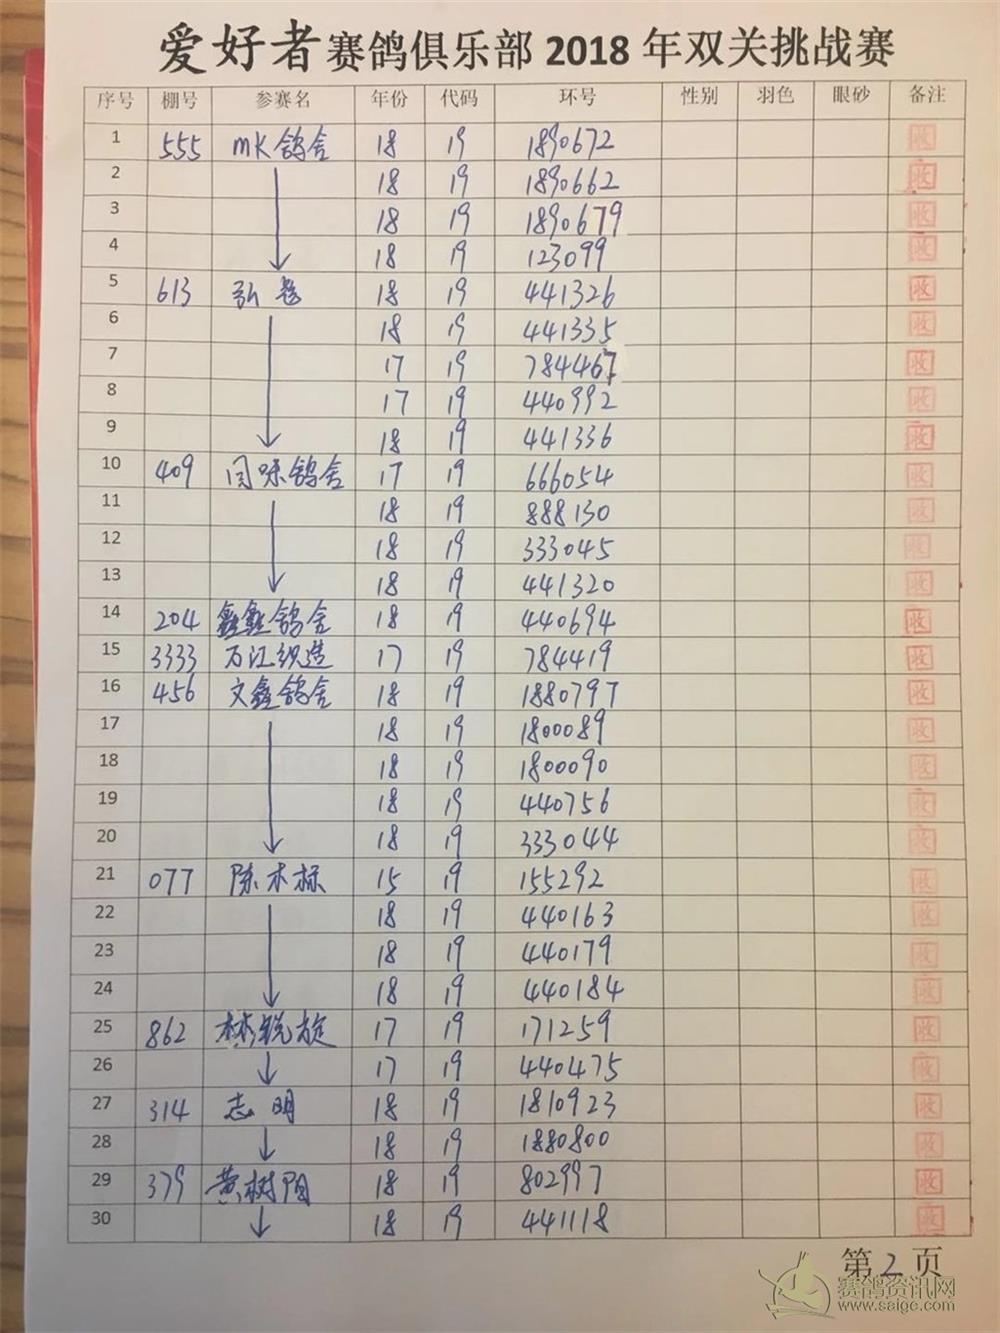 爱好者赛鸽俱乐部2018年双关挑战赛
序号 棚号 参赛名 年份 代码 环号 性别 羽色 眼砂 备注
1 555 MK鸽舍 18 19 1890672 收
2 18 19 1890662 收
3 18 19 1890679 收
4 18 19 123099 收
5 613 弘 18 19 441326 收
6 18 19 441335 收
7 17 19 784467 收
8 17 19 440992 收
9 18 19 441336 收
10 409 闫咏鸽舍 17 19 666054 收
11 18 19 888130 收
12 18 19 333045 收
13 18 19 441320 收
14 204 鑫鑫鸽舍 18 19 440694 收
15 3333 万江织造 17 19 784419 收
16 456 文鑫鸽舍 18 19 1880797 收
17 18 19 1800089 收
18 18 19 1800090 收
19 18 19 440756 收
20 18 19 333044 收
21 077 陈木标 15 19 155292 收
22 18 19 440163 收
23 18 19 440179 收
24 18 19 440184 收
25 862 林锐旋 17 19 171259 收
26 17 19 440475 收
27 314 志明 18 19 1810923 收
28 18 19 1880800 收
29 379 黄树阳 18 19 802997 收
30 18 19 441118 收
第2页
赛鸽资讯网
www.saige.com